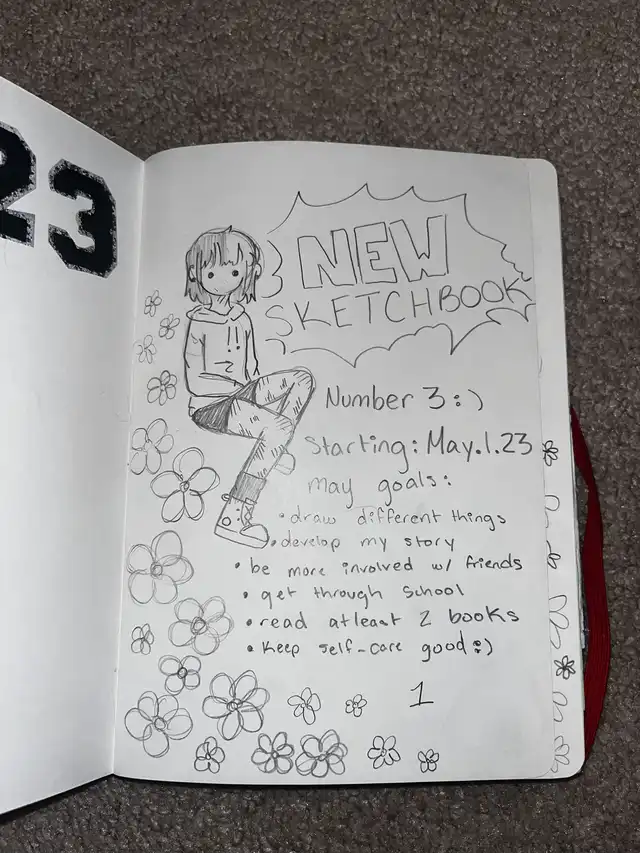 23
NEW
SKETCHBOOK
Number 3:)
Starting: May.1.23
May goals:
• draw different things
• develop my story
• be more involved w/ friends
• get through school
• read atleast 2 books
• keep self-care good:)
1